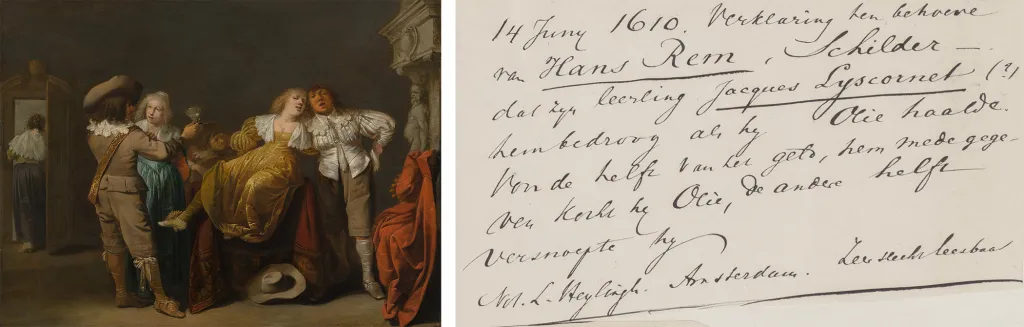 14 Juny 1610. Verklaring ten behoeve
van Hans Rem, Schilder —
dat zijn leerling Jacques Lyscornet (?)
hem bedroog als hy Olie haalde.
Voor de helft van het geld, hem mede gege-
ven kocht hy Olie, de andere helft
versnoepte hy
Not. L. Heylingh. Amsterdam. Zeer slecht leesbaar